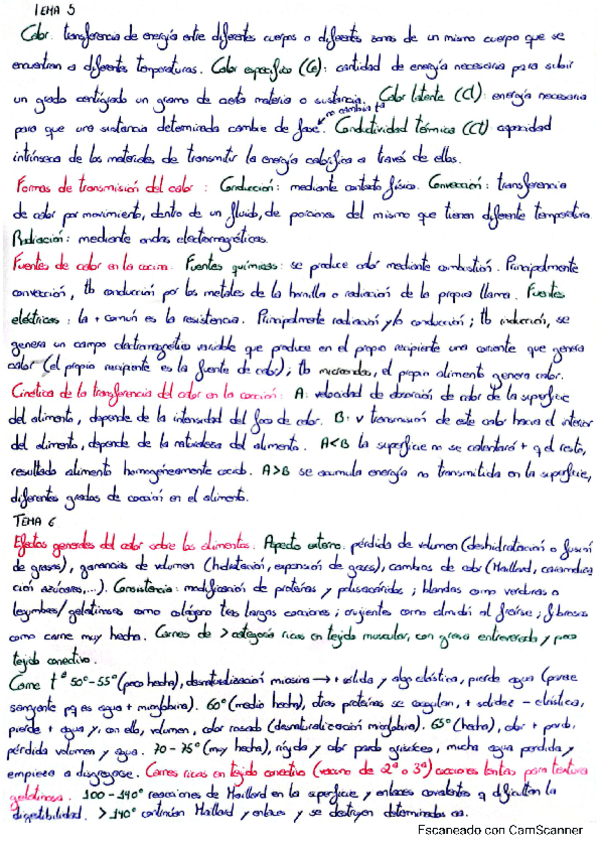 TEMA 5
Calor: transferencia de energía entre diferentes cuerpos o diferentes zonas de un mismo cuerpo que se
encuentran a diferentes temperaturas. Calor específico (Ce): cantidad de energía necesaria para subir
un grado centígrado un gramo de cierta materia o sustancia. Calor latente (Cl): energía necesaria
para que una sustancia determinada cambie de fase. no cambia tª Conductividad térmica (CT) capacidad
intrínseca de los materiales de transmitir la energía calorífica a través de ellos.
Formas de transmisión del calor: Conducción: mediante contacto físico. Convección: transferencia
de calor por movimiento, dentro de un fluido, de porciones del mismo que tienen diferente temperatura.
Radiación: mediante ondas electromagnéticas.
Fuentes de calor en la cocina. Fuentes químicas: se produce calor mediante combustión. Principalmente
convección, tb conducción por los metales de la hornilla o radiación de la propia llama. Fuentes
eléctricas: la + común es la resistencia. Principalmente radiación y/o conducción; tb inducción, se
genera un campo electromagnético variable que produce en el propio recipiente una corriente que genera
calor (el propio recipiente es la fuente de calor); tb microondas, el propio alimento genera calor.
Cinética de la transferencia del calor en la cocción: A: velocidad de absorción de calor de la superficie
del alimento, depende de la intensidad del foco de calor. B: v transmisión de este calor hacia el interior
del alimento, depende de la naturaleza del alimento. A<B la superficie no se calentará + q el resto,
resultado alimento homogéneamente cocido. A>B se acumula energía no transmitida en la superficie,
diferentes grados de cocción en el alimento.
TEMA 6
Efectos generales del calor sobre los alimentos. Aspecto externo: pérdida de volumen (deshidratación o fusión
de grasas), ganancias de volumen (hidratación, expansión de gases), cambios de color (Maillard, carameliza
ción azúcares,...). Consistencia: modificación de proteínas y polisacáridos; blandas como verduras o
legumbres/gelatinosas como colágeno tras largas cocciones; crujientes como almidón al freírse; fibrosas
como carne muy hecha. Carnes de > categoría ricas en tejido muscular, con grasa entreverada y poco
tejido conectivo.
Carne tª 50º-55º (poco hecha), desnaturalización miosina → + sólida y algo elástica, pierde agua (parece
sangrante pq es agua + mioglobina). 60º (medio hecha), otras proteínas se coagulan, + solidez - elástica,
pierde + agua y, con ello, volumen, color rosado (desnaturalización mioglobina). 65º (hecha), color + pardo,
pérdida volumen y agua. 70-75º (muy hecha), rígida y color pardo grisáceo, mucha agua perdida y
empieza a disgregarse. Carnes ricas en tejido conectivo (vacuno de 2ª o 3ª) cocciones lentas para textura
gelatinosa. 100-140º reacciones de Maillard en la superficie y enlaces covalentes q dificultan la
digestibilidad. >140º continúan Maillard y enlaces y se destruyen determinados aa.
Escaneado con CamScanner